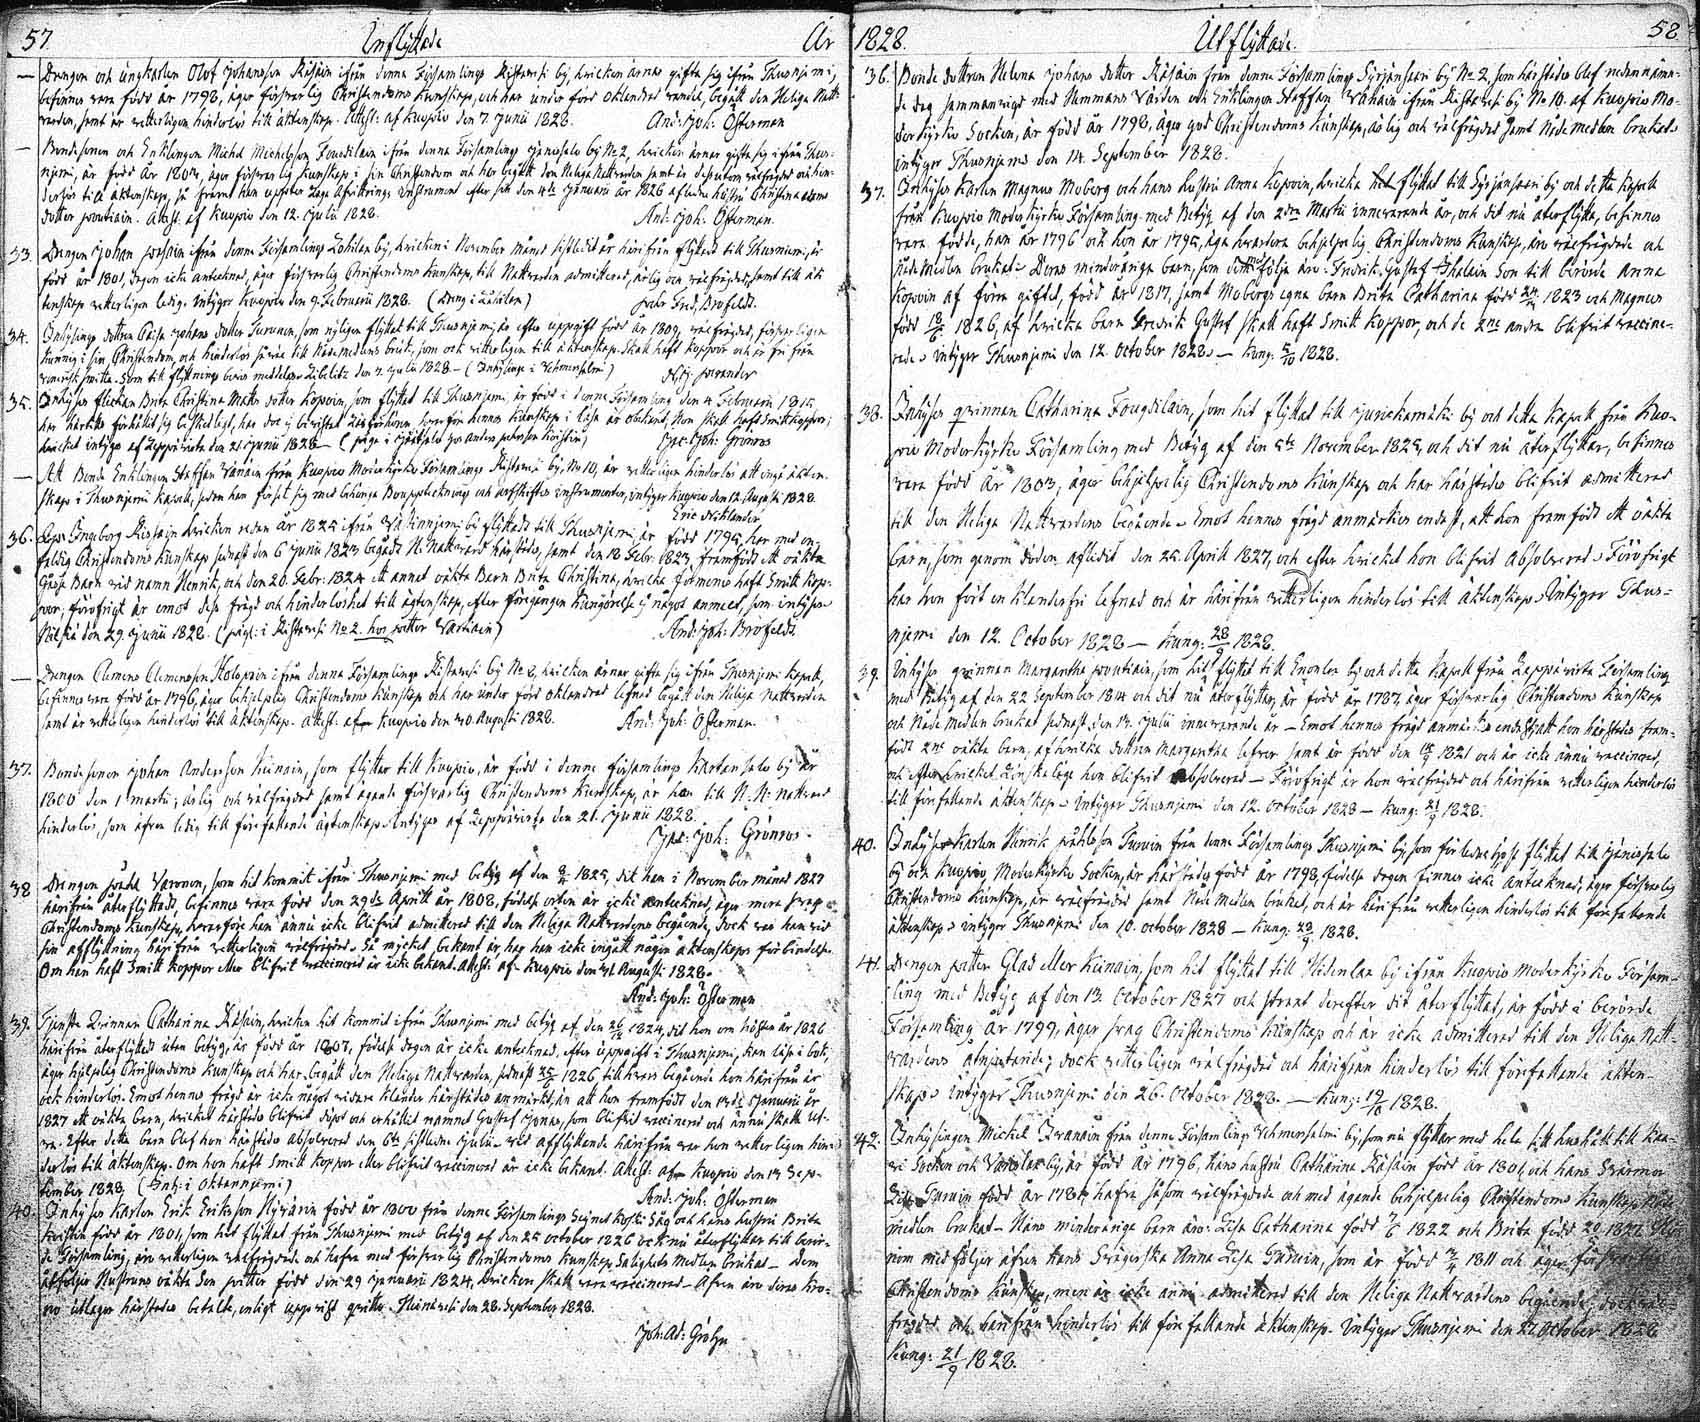 57. Inflyttade År
— Drengen och ungkarlen Olof Johansson Räsäin ifrån denna Församlings Ristaveesi by, hvilken ärnar gifta sig ifrån Thusnjemi,
befinnes vara född år 1798, äger försvarlig Christendoms Kunskap, och har under förd oklandrad vandel, begått den Heliga Natt-
varden, samt är vetterligen hinderlös till äktenskap. Attest. af Kuopio den 7 Junii 1828. And: Joh: Österman
— Bondesonen och Enklingen Michel Michelsson Fougdilain ifrån denna Församlings by No 2, hvilken ärnar gifta sig ifrån Thus-
njemi, är född år äger försvarlig Kunskap i sin Christendom och har begått den Heliga Nattvarden samt är dessutom välfrägdad och hin-
derlös till äktenskap, så framt han uppter laga Afvittrings Instrument efter sin den 4de Januarii år 1826 aflidna hustru Christina
dotter Attest. af Kuopio den 12 Julii 1828. And: Joh: Österman.
33. Drengen Johan ifrån denna Församlings by, hvilken i November månad sistledit år härifrån flyttad till Thusnjemi, är
född år 1801, dagen icke antecknad, äger försvarlig Christendoms Kunskap, till Nattvarden admitterad, ärlig och välfrägdad, samt till äk-
tenskap vetterligen ledig. Intygar Kuopio den 9 Februarii 1828. Brofeldt.
34. Inhysings dottren Johans dotter Turunen, som nyligen flyttat till Thusnjemi, är efter uppgift född år 1809, välfrägdad, försvarligen
kunnig i sin Christendom, och hinderlös såväl till Nådemedlens bruk, som ock vetterligen till äktenskap. Skall haft koppor och är fri från
venerisk smitta. Som till flyttnings bevis meddelas. Libelitz den 7 Julii 1828 —
35. Inhyses flickan Brita Christina Matts dotter Kopoin, som flyttat till Thusnjemi, är född i denna Församling den 4 Februarii 1815,
har härstädes förhållit sig beskedligt, hennes kunskap i läsa är obekant, Hon skall haft Smittkoppor;
hvilket intygas af Leppävirta den 21 Junii 1828 — Jac: Joh: Grönroos
— Att Bonde Enklingen Staffan Vänäin från Kuopio Moderkyrko Församlings Ristaveesi by, No 10, är vetterligen hinderlös att ingå äkten-
skap i Thusnjemi kapell, sedan han försett sig med behöriga Bouppteckning och arfskiftes instrumenter, intygar Kuopio den 12 Augusti 1828.
Eric Niklander
36. Ingeborg hvilken redan år 1825 ifrån by flyttade till Thusnjemi, är född 1795, har med en-
faldig Christendoms kunskap sednast den 6 Junii begådt H. Nattvard härstädes, samt den 18 Febr: framfödt ett oäkta
Gosse Barn vid namn Henrik, och den 20 Febr: 1824 ett annat oäkta Barn Brita Christina, hvilka förmenas haft Smitt kop-
por; förofrigt är emot dess frägd och hinderlöshet till ägtenskap, efter föregången Kungörelse ej något anmält, som intygas
Pielsjä den 29 Junii 1828. And: Joh: Brofeldt.
— Drengen Clemens Clemensson Holopain ifrån denna Församlings Ristaveesi by No 2, hvilken ärnar gifta sig ifrån Thusnjemi Kapell,
befinnes vara född år 1796, äger behjelplig Christendoms Kunskap och har under förd oklandrad lefnad begått den Heliga Nattvarden
samt är vetterligen hinderlös till äktenskap. Attest. af Kuopio den 30 Augusti 1828. And: Joh: Österman.
37. Bondesonen Johan Andersson Kiinain, som flyttar till Kuopio, är född i denna församlings by år
1800 den 1 Martii; ärlig och välfrägdad samt ägande försvarlig Christendoms Kunskap, är han till H. H. Nattvard
hinderlös, som äfven ledig till författande ägtenskap. Intygas af Leppävirta den 21 Junii 1828.
Jac: Joh: Grönroos.
38. Drengen Påhl Varonen, som hit kommit ifrån Thusnjemi med betyg af den 1825, dit han i November månad 1827
härifrån återflyttade, befinnes vara född den 29de Aprill år 1808, födelse orten är icke antecknad, äger mera svag
Christendoms Kunskap, hvarföre han ännu icke blifvit admitterad till den Heliga Nattvardens begående, dock var han vid
sin afflyttning härifrån vetterligen välfrägdad. Så mycket bekant är, har han icke ingått någon äktenskaps förbindelse.
Om han haft Smitt koppor eller blifvit vaccinerad är icke bekant. Attest. af Kuopio den 31 Augusti 1828.
And: Joh: Österman
39. Tjenste Qvinnan Catharina Räsäin, hvilken hit kommit ifrån Thusnjemi med betyg af den 1824, dit hon om hösten år 1826
härifrån återflyttade utan betyg, är född år 1807, födelse dagen är icke antecknad, efter uppgift i Thusnjemi, kan läsa i bok,
äger hjelplig Christendoms Kunskap och har begått den Heliga Nattvarden, sednast 1826, till hvars begående hon härifrån är
ock hinderlös. Emot hennes frägd är icke något vidare härstädes anmärkt, än att hon framfödt den Januarii år
1827 ett oäkta barn, hvilket härstädes blifvit döpt och erhållit namnet Gustaf som blifvit vaccinerad och ännu skall lef-
va. Efter detta barn blef hon härstädes absolverad den 6te sistledne Julii. Vid afflyttande härifrån var hon vetterligen hin-
derlös till äktenskap. Om hon haft Smitt koppor eller blifvit vaccinerad är icke bekant. Attest. af Kuopio den Sep-
tember 1828. And: Joh: Österman
40. Inhyses Karlen Erik Eriksson född år 1800 från denna Församlings och hans hustru Brita
född år 1801, som hit flyttat från Thusnjemi med betyg af den 25 October 1826 och nu återflyttar till berör-
de Församling, äro vetterligen välfrägdade och hafva med försvarlig Christendoms kunskap Salighets medlen brukat — Dem
åtföljer Hustruns oäkta Son Petter född den 29 Januarii 1824, hvilken skall vara vaccinerad — Äfven äro deras Kro-
no utlagor härstedes betalte, enligt uppvist qvitto. den 28 September 1828.
Joh: Ad: Gröhn

1828. Utflyttade. 58.
36. Bonde dottren Helena Johans dotter Räsäin från denna Församlings Syvjänsaari by No 2, som härstädes blef nedannämn-
de dag sammanvigd med Nemmans Värden och Enklingen Staffan Vänäin ifrån Ristaveesi by No 10. af Kuopio Mo-
derkyrko Socken, är född år 1798, äger god Christendoms Kunskap, ärlig och välfrägdad samt Nådemedlen brukat
intygar Thusnjemi den 14. September 1828.
37. Inhyses Karlen Magnus Moberg och hans hustru Anna Kopoin, hvilka flyttat till Syvjänsaari by och detta Kapell
från Kuopio Moderkyrko Församling med Betyg af den 2dra Martii innevarande år, och dit nu återflytta, befinnes
vara födde, han år 1796 och hon år 1795, äga hvardera behjelpelig Christendoms Kunskap, äro välfrägdade och
Nådemedlen brukat. Deras minderåriga barn, som dem följa äro: Fredrik Gustaf Ihalain Son till berörde Anna
Kopoin af förra giftet, född år 1817, samt Mobergs egna barn Brita Catharina född 1823 och Magnus
född 18/6 1826, af hvilka barn Fredrik Gustaf skall haft Smitt koppor, och de 2ne andra blifvit vaccine-
rade. intygar Thusnjemi den 12. October 1828. — Kung: 5/10 1828.
38. Inhyses qvinnan Catharina Fougdilain, som hit flyttat till Juniekamäki by och detta Kapell från Kuo-
pio Moderkyrko Församling med Betyg af den 5te November 1825, och dit nu återflyttar, befinnes
vara född år äger behjelpelig Christendoms Kunskap och har härstädes blifvit admitterad
till den Heliga Nattvardens begående. Emot hennes frägd anmärkes endast, att hon framfödt ett oäkta
barn, som genom döden afledit den 25. Aprill 1827, och efter hvilket hon blifvit absolverad. Förofrigt
har hon fört en klanderfri lefnad och är härifrån vetterligen hinderlös till äktenskap. Intygar Thus-
njemi den 12. October 1828 — Kung: 28/9 1828.
39. Inhyses qvinnan Margaretha Poutiain, som hit flyttat till Enonlax by och detta Kapell från Leppävirta Församling
med Betyg af den 22 September 1814 och dit nu återflyttar, är född år 1787, äger försvarlig Christendoms Kunskap
och Nåde medlen brukat sednast den 13. Julii innevarande år — Emot hennes frägd anmärkes endast att hon härstädes fram-
födt 2ne oäkta barn, af hvilka dottren Margaretha lefver samt är född den 1821 och är icke ännu vaccinerad,
och efter hvilket hon blifvit absolverad — Förofrigt är hon välfrägdad och härifrån vetterligen hinderlös
till författande äktenskap. intygar Thusnjemi den 12. October 1828 — Kung: 21/9 1828.
40. Inhyses Karlen Henrik Påhlsson Turuin från denna Församlings Thusnjemi by, som förledne höst flyttat till
by och Kuopio Moderkyrko Socken, är härstädes född år 1798, födelse dagen finnes icke antecknad, äger försvarlig
Christendoms Kunskap, är välfrägdad samt Nåde Medlen brukat, och är härifrån vetterligen hinderlös till författande
äktenskap. intygar Thusnjemi den 10. October 1828 — Kung: 28/9 1828.
41. Drengen Petter Glad eller Kiinain, som hit flyttat till Hidenlax by ifrån Kuopio Moderkyrko Försam-
ling med Betyg af den 13. October 1827 och strant derefter dit återflyttat, är född i berörde
Församling år 1799, äger svag Christendoms kunskap och är icke admitterad till den Heliga Natt-
vardens åtnjutande; dock vetterligen välfrägdad och härifrån hinderlös till författande äkten-
skap. intygar Thusnjemi den 26. October 1828. — Kung: 19/10 1828.
42. Inhysingen Michel Ivanain från denna Församlings Vehmersalmi by, som nu flyttar med hela sitt hushåll till Kaa-
vi Socken och by, är född år 1796, hans hustru Catharina Räsäin född år 1801 och hans Svärmor
Turuin född år hafva såsom välfrägdade och med ägande behjelpelig Christendoms Kunskap Nåde
medlen brukat — Hans minderåriga barn äro: Lisa Catharina född 1822 och Brita född 1827.
nom medföljer äfven hans Svägerska Anna Lisa Turuin, som är född 1811 och äger försvarlig
Christendoms Kunskap, men är icke ännu admitterad till den Heliga Nattvardens begående; dock väl-
frägdad och härifrån hinderlös till författande äktenskap. intygar Thusnjemi den 27 October 1828
Kung: 21/9 1828.